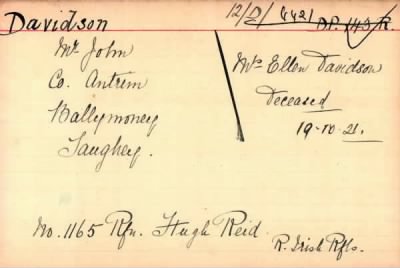 Davidson
12/D/6421
D.P. 143 R.
Mr John
Co. Antrim
Ballymoney
Taughey.
Mrs Ellen Davidson
Deceased
19-10-21.
No. 1165 Rfn. Hugh Reid.
R. Irish Rfls.